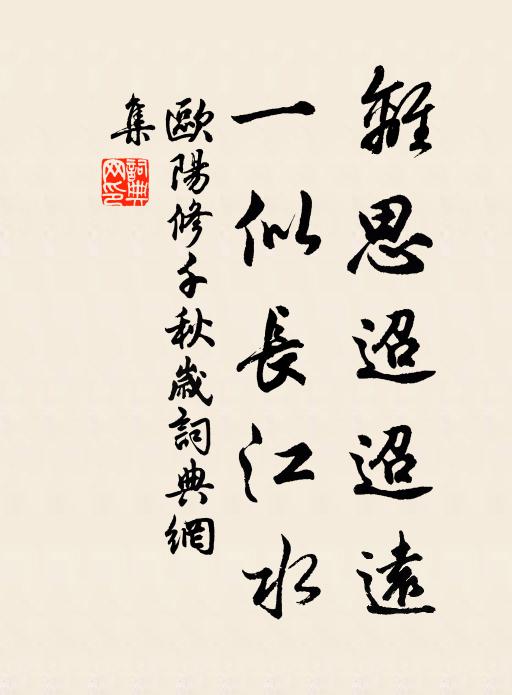 離思迢迢遠
一似長江水
歐陽修千秋歲詞典網
集
詞典
網印